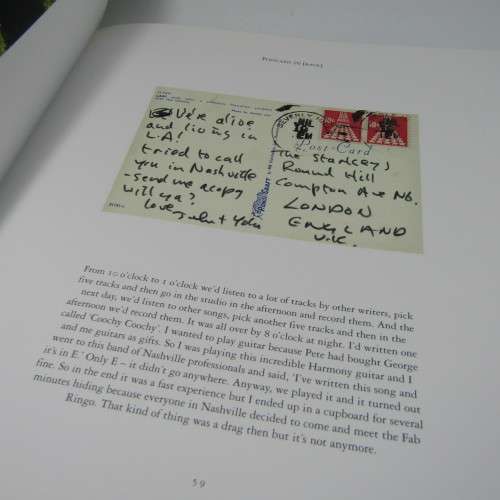 POSTCARD IN [RANS]
We're alive
and living in
L.A!
tried to call
you in Nashville
-send me a copy
will ya?
love,
John + Yoko
BEVERLY HI
Post-Card
The Starkeys
Round Hill
Compton Ave N6.
LONDON
ENGLAND
U.K.
From 10 o'clock to 1 o'clock we'd listen to a lot of tracks by other writers, pick
five tracks and then go in the studio in the afternoon and record them. And the
next day, we'd listen to other songs, pick another five tracks and then in the
afternoon we'd record them. It was all over by 8 o'clock at night. I'd written one
called 'Coochy Coochy'. I wanted to play guitar because Pete had bought George
and me guitars as gifts. So I was playing this incredible Harmony guitar and I
went to this band of Nashville professionals and said, 'I've written this song and
it's in E.' Only E – it didn't go anywhere. Anyway, we played it and it turned out
fine. So in the end it was a fast experience but I ended up in a cupboard for several
minutes hiding because everyone in Nashville decided to come and meet the Fab
Ringo. That kind of thing was a drag then but it's not anymore.
59